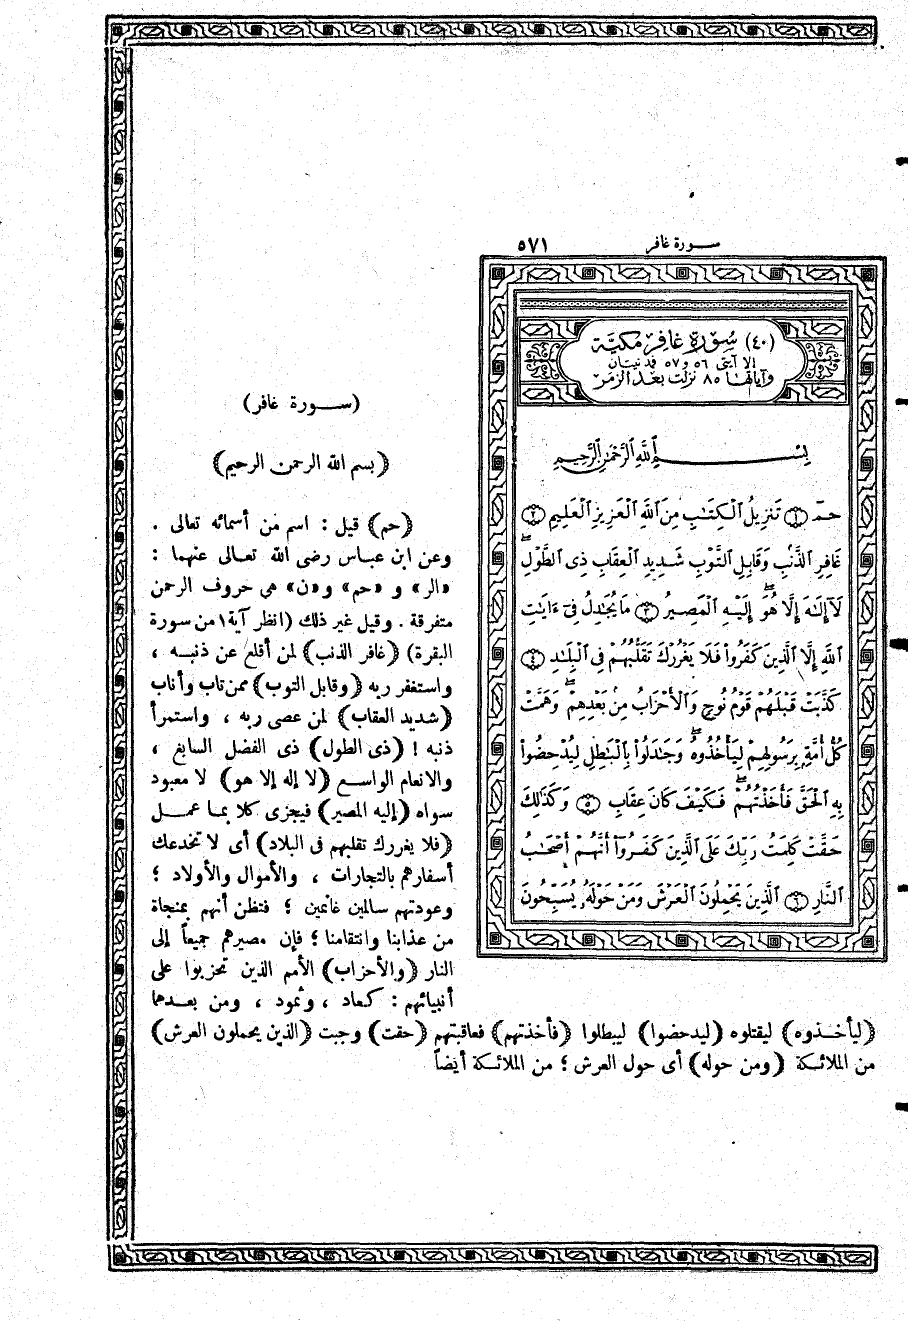 سورة غافر ٥٧١
(٤٠) سُورَةِ غَافِرْ مَكِيَّة
إلا آيتى ٥٦ و ٥٧ فمدنيتان
وآياتها ٨٥ نزلت بعد الزمر
بِسْمِ اللَّهِ الرَّحْمَٰنِ الرَّحِيمِ
حمٓ ١ تَنزِيلُ الْكِتَٰبِ مِنَ اللَّهِ الْعَزِيزِ الْعَلِيمِ ٢
غَافِرِ الذَّنۢبِ وَقَابِلِ التَّوْبِ شَدِيدِ الْعِقَابِ ذِى الطَّوْلِۖ
لَآ إِلَٰهَ إِلَّا هُوَۖ إِلَيْهِ الْمَصِيرُ ٣ مَا يُجَٰدِلُ فِىٓ ءَايَٰتِ
اللَّهِ إِلَّا الَّذِينَ كَفَرُوا۟ فَلَا يَغْرُرْكَ تَقَلُّبُهُمْ فِى الْبِلَٰدِ ٤
كَذَّبَتْ قَبْلَهُمْ قَوْمُ نُوحٍ وَالْأَحْزَابُ مِنۢ بَعْدِهِمْۖ وَهَمَّتْ
كُلُّ أُمَّةٍۭ بِرَسُولِهِمْ لِيَأْخُذُوهُۖ وَجَٰدَلُوا۟ بِالْبَٰطِلِ لِيُدْحِضُوا۟
بِهِ الْحَقَّ فَأَخَذْتُهُمْۖ فَكَيْفَ كَانَ عِقَابِ ٥ وَكَذَٰلِكَ
حَقَّتْ كَلِمَتُ رَبِّكَ عَلَى الَّذِينَ كَفَرُوٓا۟ أَنَّهُمْ أَصْحَٰبُ
النَّارِ ٦ الَّذِينَ يَحْمِلُونَ الْعَرْشَ وَمَنْ حَوْلَهُۥ يُسَبِّحُونَ
(سورة غافر)
(بسم الله الرحمن الرحيم)
(حم) قيل : اسم من أسمائه تعالى .
وعن ابن عباس رضى الله تعالى عنهما :
«الر» و «حم» و «ن» هى حروف الرحمن
متفرقة . وقيل غير ذلك (انظر آية ١ من سورة
البقرة) (غافر الذنب) لمن أقلع عن ذنبه ،
واستغفر ربه (وقابل التوب) ممن تاب وأناب
(شديد العقاب) لمن عصى ربه ، واستمرأ
ذنبه ! (ذى الطول) ذى الفضل السابغ ،
والانعام الواسع (لا إله إلا هو) لا معبود
سواه (إليه المصير) فيجزى كلا بما عمل
(فلا يغررك تقلبهم فى البلاد) أى لا تخدعك
أسفارهم بالتجارات ، والأموال والأولاد ؛
وعودتهم سالمين غانمين ؛ فتظن أنهم بمنجاة
من عذابنا وانتقامنا ؛ فإن مصيرهم جميعاً إلى
النار (والأحزاب) الأمم الذين تحزبوا على
أنبيائهم : كعاد ، وثمود ، ومن بعدهما
(ليأخذوه) ليقتلوه (ليدحضوا) ليبطلوا (فأخذتهم) فعاقبتهم (حقت) وجبت (الذين يحملون العرش)
من الملائكة (ومن حوله) أى حول العرش ؛ من الملائكة أيضاً